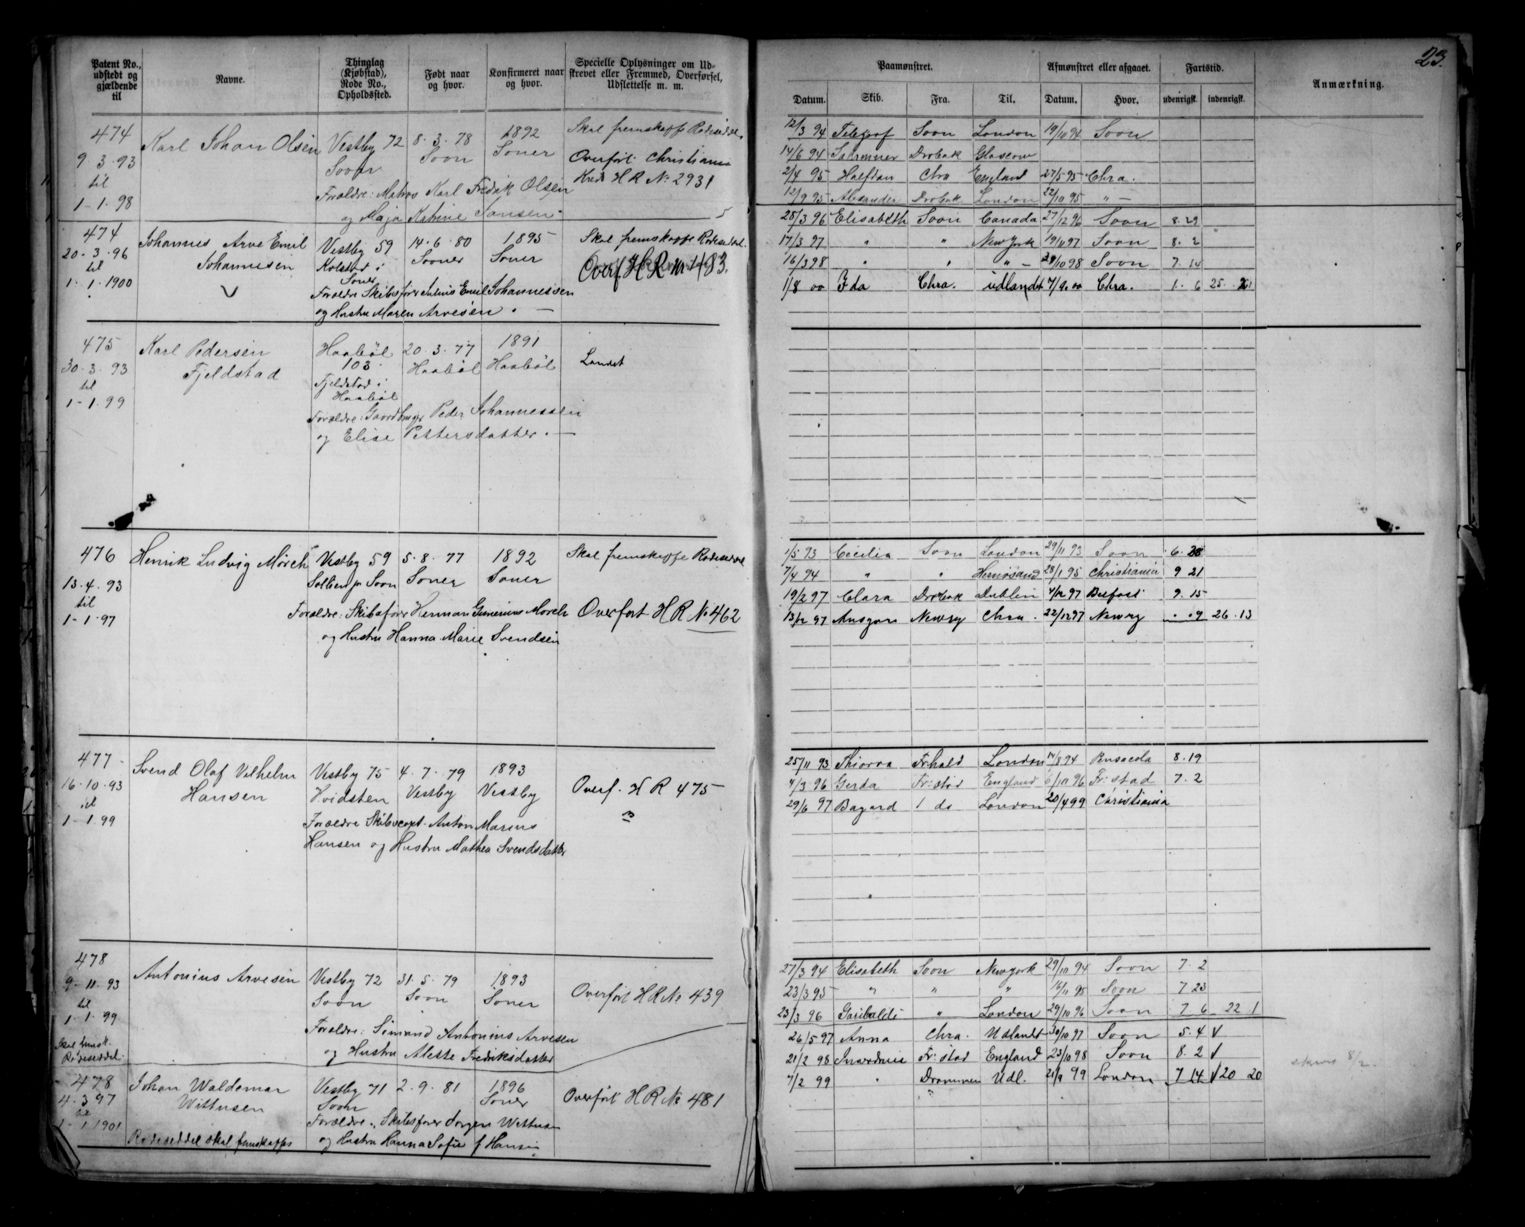 23.
Patent No., udstedt og gjældende til
Navne.
Thinglag (Kjøbstad), Rode No., Opholdssted.
Født naar og hvor.
Konfirmeret naar og hvor.
Specielle Oplysninger om Udskrevet eller Fremmed, Overførsel, Udslettelse m. m.
Paamønstret.
Afmønstret eller afgaaet.
Fartstid.
Anmærkning.
Datum. Skib. Fra. Til. Datum. Hvor. udenrigsk. indenrigsk.
474 Karl Johan Olsen Vestby 72 8.3.78 1892 Skal fremskaffe Rodeseddel
9.3.93 Soon Soon Soner Overført Christiania
til Kreds HR No 2931
1-1.98 Forældre: Matros Karl Fredrik Olsen
og Maja Katrine Jansen.
12/3 94 Soon London 19/10 94 Soon
14/6 94 Drøbak Glascow
2/4 95 Halfdan Chra England 27/5 95 Chra.
12/9 95 Alexander Drøbak London 22/10 95 " —
474 Johannes Arve Emil Vestby 59 14.6.80 1895 Skal fremskaffe Rodeseddel
20.3.96 Johannesen Kolstad i Sooner Soner Overf. HR No 483.
til Soner
1.1.1900 Forældre Skibsfører Emil Johannessen
og Hustru Maren Arvesen. —
28/3 96 Elisabeth Soon Canada 27/12 96 Soon 8.29
17/3 97 " " New York 19/11 97 Soon 8.2
16/3 98 " " " — 29/10 98 Soon 7.14
1/8 00 Ida Chra. udlandet 7/9.00 Chra. 1.6 25.21
475 Karl Pedersen Haabøl 20.3.77 1891
30.3.93 Fjeldstad 103. Haabøl Haabøl Landet
til Fjeldstad i
1-1.99 Haabøl
Forældre: Gaardbruger Peder Johannessen
og Elise Pettersdatter. —
476 Henrik Ludvig Mørch Vestby 59 5.8.77 1892 Skal fremskaffe Rodeseddel
13.4.93 Solberg pr Soon Soner Soner
til Forældre: Skibsfører Herman Mørch Overført HR No 462
1-1.97 og Hustru Hanna Marie Svendsen
1/5 93 Cecilia Soon London 29/11 93 Soon 6.28
7/4 94 " " Hernøsand 28/1 95 Christiania 9 21
19/2 97 Clara Drøbak Dublin Belfast 9.15
Ansgar Newry Chra. 22/12 97 Newry . .9 26.13
477 Svend Olaf Vilhelm Vestby 75 4.7.79 1893
16.10.93 Hansen Hvidsten Vestby Vestby Overf. HR 475
til Forældre Skibscapt. Anton Marius
1-1.99 Hansen og Hustru Mathea Svendsdatter
25/11 93 Thiorva Frhald London Pensacola 8.19
4/3 96 Gerda Fr:stad England 6/10 96 Fr:stad 7.2
29/6 97 Bagard do London 20/4 99 Christiania
478 Antonius Arvesen Vestby 72 31.5.79 1893
9.11.93 Soon Soon Soner Overført HR No 439
til
1-1.99 Forældre: Simund Antonius Arvesen
Skal fremsk. Rodeseddel. og Hustru Alette Fredriksdatter
27/3 94 Elisabeth Soon New York 29/10 94 Soon 7.2
23/3 95 " " " 14/11 95 Soon 7 23
23/3 96 Garibaldi " London 29/10 96 Soon 7 6 22 1
26/5 97 Anna Chra. Udlandet 30/10 97 Soon 5.4
478 Johan Waldemar Vestby 71 2.9.81 1896 Overført HR No 481
4.3.97 Wittusen Soon Soner
til Forældre: Skibsfører Jørgen Wittusen
1-1.1901 og Hustru Hanna Sofie f Hansen
Rodeseddel skal fremskaffes
21/2 98 Fr:stad England 23/10 98 Soon 8.2
7/2 99 " Drammen Udl. 21/9 99 London 7 14 20 20
8/2.